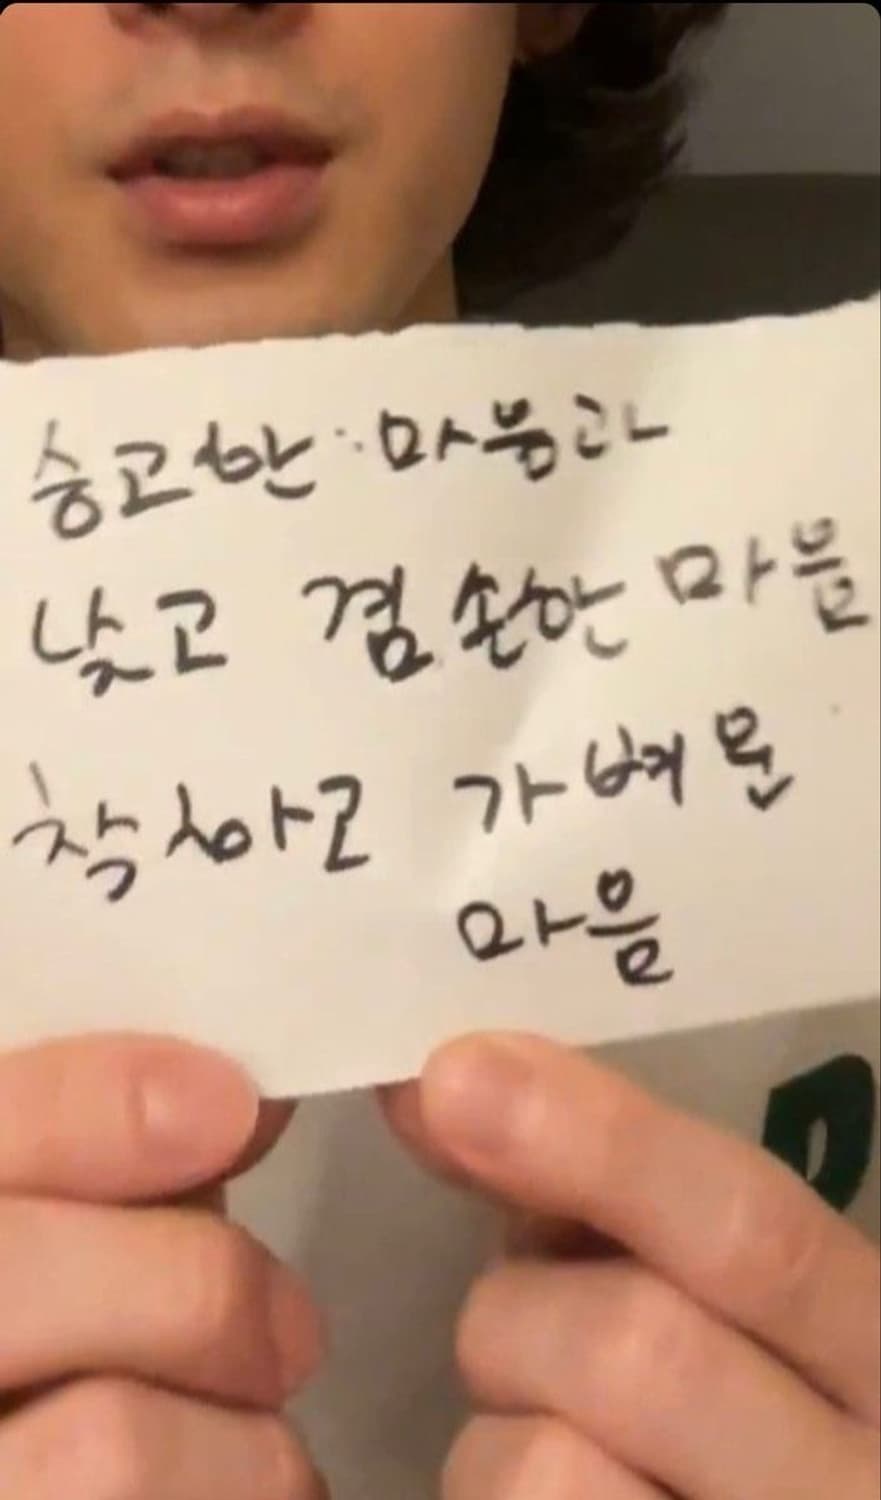 숭고한 마음과
낮고 겸손한 마음
착하고 가벼운
마음